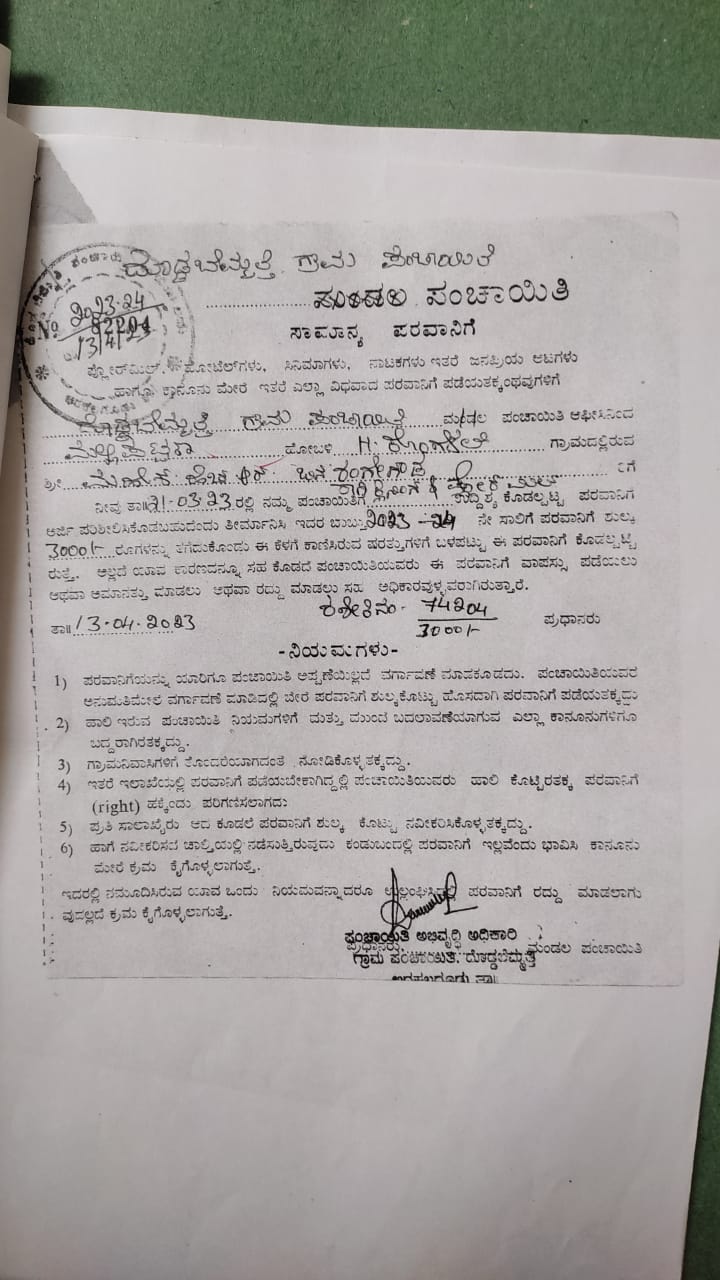 ದೊಡ್ಡಬೆಮ್ಮತ್ತಿ ಗ್ರಾಮ ಪಂಚಾಯಿತಿ
ಮಂಡಲ ಪಂಚಾಯಿತಿ
2023-24
No 82204
13/4/23
ಸಾಮಾನ್ಯ ಪರವಾನಿಗೆ
ಫ್ಲೋರ್‌ಮಿಲ್. ಹೋಟೆಲ್‌ಗಳು, ಸಿನಿಮಾಗಳು, ನಾಟಕಗಳು ಇತರೆ ಜನಪ್ರಿಯ ಆಟಗಳು
ಹಾಗೂ ಕಾನೂನು ಮೇರೆ ಇತರೆ ಎಲ್ಲಾ ವಿಧವಾದ ಪರವಾನಿಗೆ ಪಡೆಯತಕ್ಕಂಥವುಗಳಿಗೆ
ದೊಡ್ಡಬೆಮ್ಮತ್ತಿ ಗ್ರಾಮ ಪಂಚಾಯಿತಿ ಮಂಡಲ ಪಂಚಾಯಿತಿ ಆಫೀಸಿನಿಂದ
ಮಲ್ಲಿಪಟ್ಟಣ ಹೋಬಳಿ H. ಗ್ರಾಮದಲ್ಲಿರುವ
ಶ್ರೀ ಬಿನ್ ರಂಗೇಗೌಡ ರಿಗೆ
ನೀವು ತಾ॥21.03.23ರಲ್ಲಿ ನಮ್ಮ ಪಂಚಾಯಿತಿಗೆ & ಉದ್ದಿಶ್ಯ ಕೊಡಲ್ಪಟ್ಟ ಪರವಾನಿಗೆ
ಅರ್ಜಿ ಪರಿಶೀಲಿಸಿಕೊಡಬಹುದೆಂದು ತೀರ್ಮಾನಿಸಿ ಇದರ ಬಾಬ್ತು 2023-24 ನೇ ಸಾಲಿಗೆ ಪರವಾನಿಗೆ ಶುಲ್ಕ
3000/- ರೂಗಳನ್ನು ತೆಗೆದುಕೊಂಡು ಈ ಕೆಳಗೆ ಕಾಣಿಸಿರುವ ಷರತ್ತುಗಳಿಗೆ ಒಳಪಟ್ಟು ಈ ಪರವಾನಿಗೆ ಕೊಡಲ್ಪಟ್ಟಿ
ರುತ್ತೆ. ಅಲ್ಲದೆ ಯಾವ ಕಾರಣವನ್ನೂ ಸಹ ಕೊಡದೆ ಪಂಚಾಯಿತಿಯವರು ಈ ಪರವಾನಿಗೆ ವಾಪಸ್ಸು ಪಡೆಯಲು
ಅಥವಾ ಅಮಾನತ್ತು ಮಾಡಲು ಅಥವಾ ರದ್ದು ಮಾಡಲು ಸಹ ಅಧಿಕಾರವುಳ್ಳವರಾಗಿರುತ್ತಾರೆ.
ರಶೀತಿ ನಂ- 74204
ತಾ॥ 13.04.2023 3000/- ಪ್ರಧಾನರು
-ನಿಯಮಗಳು-
1) ಪರವಾನಿಗೆಯನ್ನು ಯಾರಿಗೂ ಪಂಚಾಯಿತಿ ಅಪ್ಪಣೆಯಿಲ್ಲದೆ ವರ್ಗಾವಣೆ ಮಾಡಕೂಡದು. ಪಂಚಾಯಿತಿಯವರ
ಅನುಮತಿಮೇಲೆ ವರ್ಗಾವಣೆ ಮಾಡಿದಲ್ಲಿ ಬೇರೆ ಪರವಾನಿಗೆ ಶುಲ್ಕಕೊಟ್ಟು ಹೊಸದಾಗಿ ಪರವಾನಿಗೆ ಪಡೆಯತಕ್ಕದ್ದು
2) ಹಾಲಿ ಇರುವ ಪಂಚಾಯಿತಿ ನಿಯಮಗಳಿಗೆ ಮತ್ತು ಮುಂದೆ ಬದಲಾವಣೆಯಾಗುವ ಎಲ್ಲಾ ಕಾನೂನುಗಳಿಗೂ
ಬದ್ದರಾಗಿರತಕ್ಕದ್ದು.
3) ಗ್ರಾಮನಿವಾಸಿಗಳಿಗೆ ತೊಂದರೆಯಾಗದಂತೆ ನೋಡಿಕೊಳ್ಳತಕ್ಕದ್ದು.
4) ಇತರೆ ಇಲಾಖೆಯಲ್ಲಿ ಪರವಾನಿಗೆ ಪಡೆಯಬೇಕಾಗಿದ್ದಲ್ಲಿ ಪಂಚಾಯಿತಿಯವರು ಹಾಲಿ ಕೊಟ್ಟಿರತಕ್ಕ ಪರವಾನಿಗೆ
(right) ಹಕ್ಕೆಂದು ಪರಿಗಣಿಸಲಾಗದು
5) ಪ್ರತಿ ಸಾಲಾಖೈರು ಆದ ಕೂಡಲೆ ಪರವಾನಿಗೆ ಶುಲ್ಕ ಕೊಟ್ಟು ನವೀಕರಿಸಿಕೊಳ್ಳತಕ್ಕದ್ದು.
6) ಹಾಗೆ ನವೀಕರಿಸದೆ ಚಾಲ್ತಿಯಲ್ಲಿ ನಡೆಸುತ್ತಿರುವುದು ಕಂಡುಬಂದಲ್ಲಿ ಪರವಾನಿಗೆ ಇಲ್ಲವೆಂದು ಭಾವಿಸಿ ಕಾನೂನು
ಮೇರೆ ಕ್ರಮ ಕೈಗೊಳ್ಳಲಾಗುತ್ತೆ.
ಇದರಲ್ಲಿ ನಮೂದಿಸಿರುವ ಯಾವ ಒಂದು ನಿಯಮವನ್ನಾದರೂ ಉಲ್ಲಂಘಿಸಿದಲ್ಲಿ ಪರವಾನಿಗೆ ರದ್ದು ಮಾಡಲಾಗು
ವುದಲ್ಲದೆ ಕ್ರಮ ಕೈಗೊಳ್ಳಲಾಗುತ್ತೆ.
ಪಂಚಾಯಿತಿ ಅಭಿವೃದ್ಧಿ ಅಧಿಕಾರಿ
ಪ್ರಧಾನರು, ಮಂಡಲ ಪಂಚಾಯಿತಿ
ಗ್ರಾಮ ಪಂಚಾಯಿತಿ, ದೊಡ್ಡಬೆಮ್ಮತ್ತಿ
ಅರಕಲಗೂಡು ತಾ॥